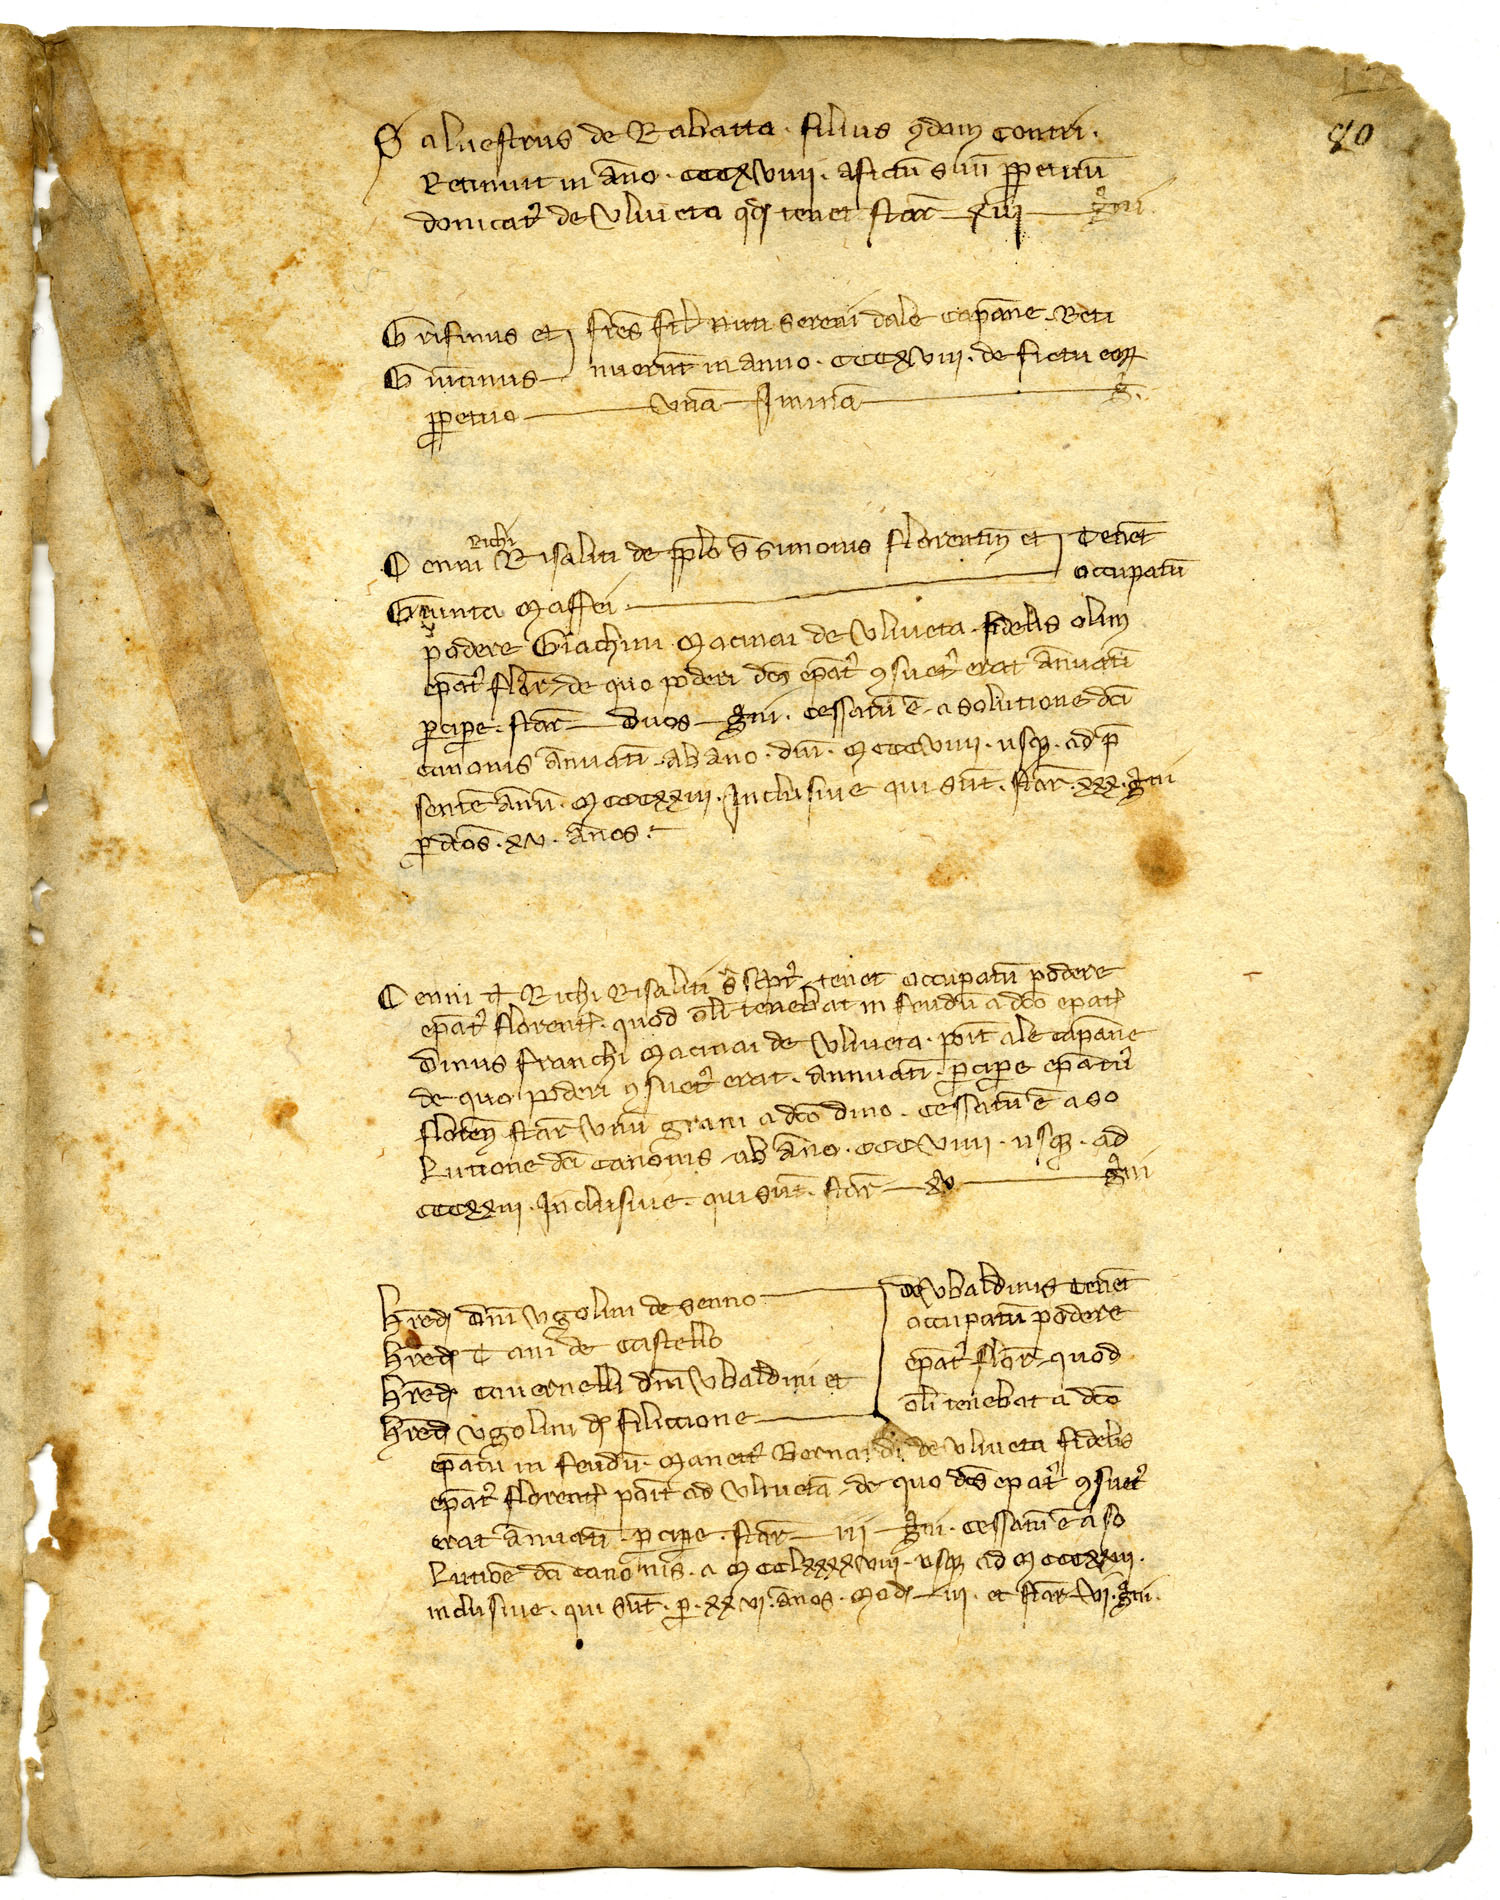 80
Saluestrus de Rabatta · filius ꝯdam Contri ·
Retinuit in āno · cccxviiii · afictū suū ꝑpetuū
donicat᷑ de Vliueta tenet star̄ xiii gͥni
Grifinus et fr̄es fil᷑ Nuti sereni dale Capāne Reti
Guictinus nuerūt in anno · cccxviii · de fictu eoꝝ
ꝑpetuo unā Iminā gͥ.
Richi
Cenni Risaliti de pp̄lo s̄ simonis florentin̄ et Tenēt
Giunta Maffei · occupatū
podere Giachini Macinai de Vliueta · fidelis olim
ep̄at᷑ flōr · de quo poderi dc̄s ep̄at᷑ ꝯsuet᷑ erat ānuatī
ꝑciꝑe · star̄ duos gͥni · cessatū ē a solutione dc̄i
canonis ānuatī ab ano · dn̄i · Mcccviiii · usqꝫ · ad p̄
sentē anū · Mcccxxiii · Inclusiue qui sūt · star̄ · xxx · gͥni
ꝑ dc̄os · xv · ānos ·
Cenni Richi Risaliti tenet occupatū podere
ep̄at᷑ florent᷑ · quod oli tenebat in feudū a dc̄o ep̄at᷑
Dinus franchi Macinai de Vliueta · poīt ale capāne
de quo poderi ꝯsuet᷑ erat · annuatī · ꝑciꝑe ep̄atui
floren̄ star̄ unū grani a dc̄o dino · cessatū ē a so
lutione dc̄i canonis ab āno · cccviiii · usqꝫ · ad
cccxxiii · Inclusiue · qui sūt · star̄ xv gͥni
hr̄ed᷑ dn̄i ugolini de senno de Vbaldinis tenēt
hr̄ed᷑ Tani de Castello occupatū podere
hr̄ed᷑ Cauernelli dn̄i Vbaldini et ep̄at᷑ flōr quod
hr̄ed᷑ ugolini d᷑ filiccione oli tenebat a dc̄o
ep̄atu in feudū · Manett᷑ Bernardi de Vliueta fidelis
ep̄at᷑ florent᷑ poīt ad Vliuetā de quo dc̄s epat᷑ ꝯsuet᷑
erat ānuatī · ꝑciꝑe · star̄ iii gͥni · cessatū ē a so
lutiōe dc̄i canonis · a Mcclxxxxviii · usqꝫ ad Mcccxxiii ·
inclusiue · qui sūt · ꝑ · xxvi · ānos · Mod᷑ iii · et star̄ vi · gͥni ·